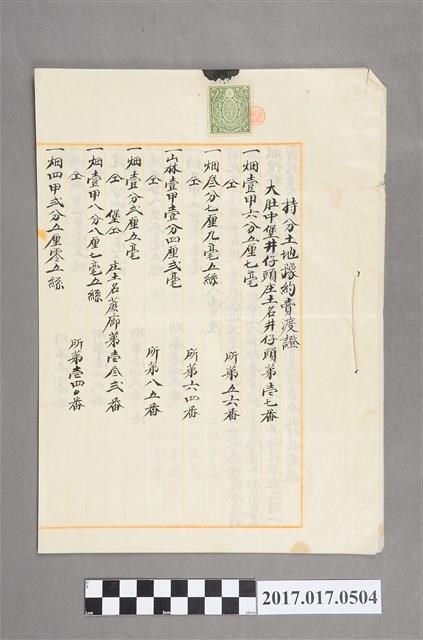 持分土地豫約賣渡證
大肚中堡井仔頭庄土名井仔頭第壹七番
一畑壹甲六分五厘七毫
仝 所第五六番
一畑叁分七厘九毫五絲
仝 所第六四番
一山林壹甲壹分四厘弍毫
仝 所第八五番
一畑壹分弍厘五毫
仝 堡仝 庄土名蔗廍第壹叁弍番
一畑壹甲八分八厘七毫五絲
仝 所第壹四〇番
一畑四甲弍分五厘零五絲
2017.017.0504